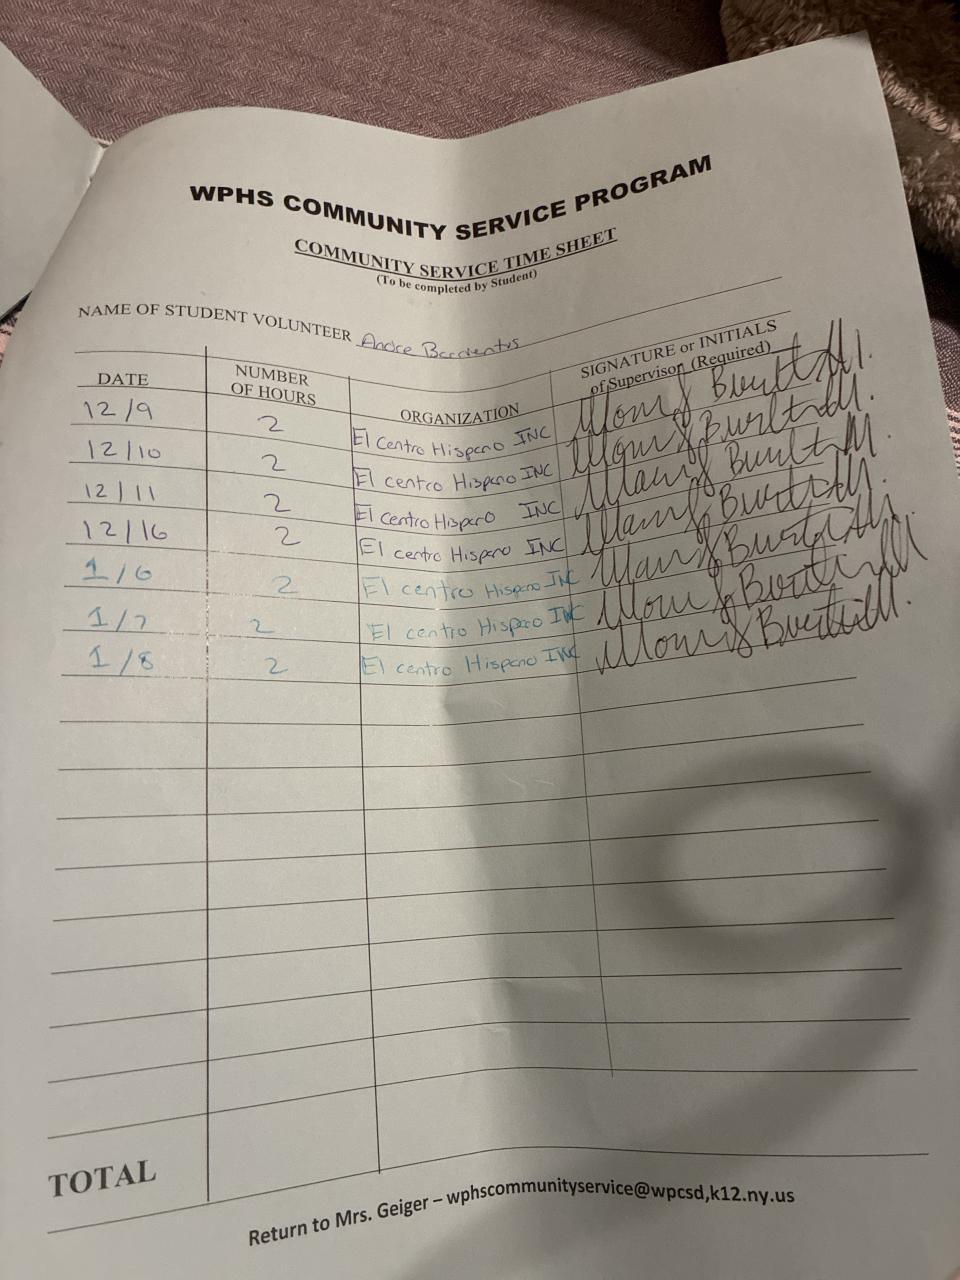 WPHS COMMUNITY SERVICE PROGRAM
COMMUNITY SERVICE TIME SHEET
(To be completed by Student)
NAME OF STUDENT VOLUNTEER Andre
DATE NUMBER OF HOURS ORGANIZATION SIGNATURE or INITIALS of Supervisor (Required)
12/9 2 El Centro Hispano INC
12/10 2 El centro Hispano INC
12/11 2 El Centro Hispano INC
12/16 2 El centro Hispano INC
1/6 2 El centro Hispano INC
1/7 2 El centro Hispano INC
1/8 2 El centro Hispano INC
TOTAL
Return to Mrs. Geiger – wphscommunityservice@wpcsd,k12.ny.us